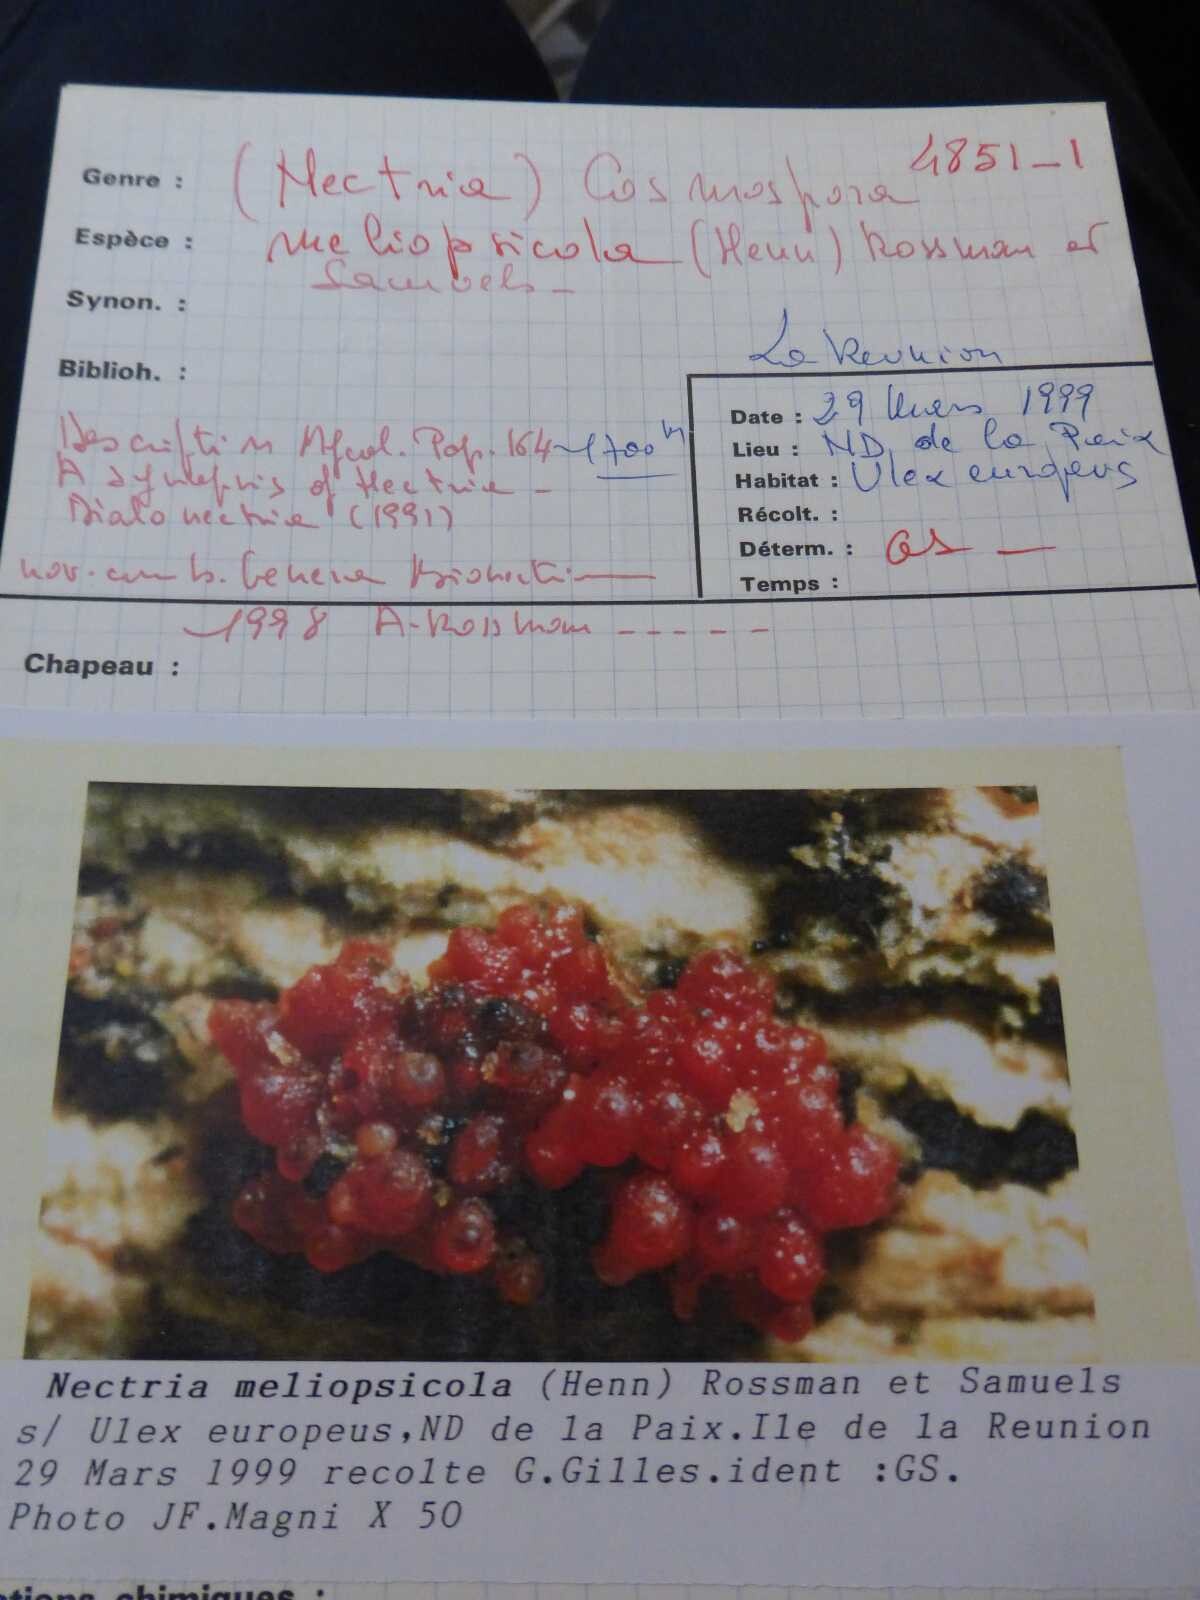 4851-1
Genre : (Nectria) Cosmospora
Espèce : meliopsicola (Henn) Rossman et
Samuels -
Synon. :
La Reunion
Biblioh. :
Date : 29 Mars 1999
Lieu : ND de la Paix
Habitat : Ulex europeus
Récolt. :
Déterm. : GS —
Temps :
Description Mycol. Pap. 164
A synopsis of Nectria -
Dialonectria (1991)
nov. comb. Genera
1998 A. Rossman - - - - -
Chapeau :
Nectria meliopsicola (Henn) Rossman et Samuels
s/ Ulex europeus,ND de la Paix.Ile de la Reunion
29 Mars 1999 recolte G.Gilles.ident :GS.
Photo JF.Magni X 50
chimiques :